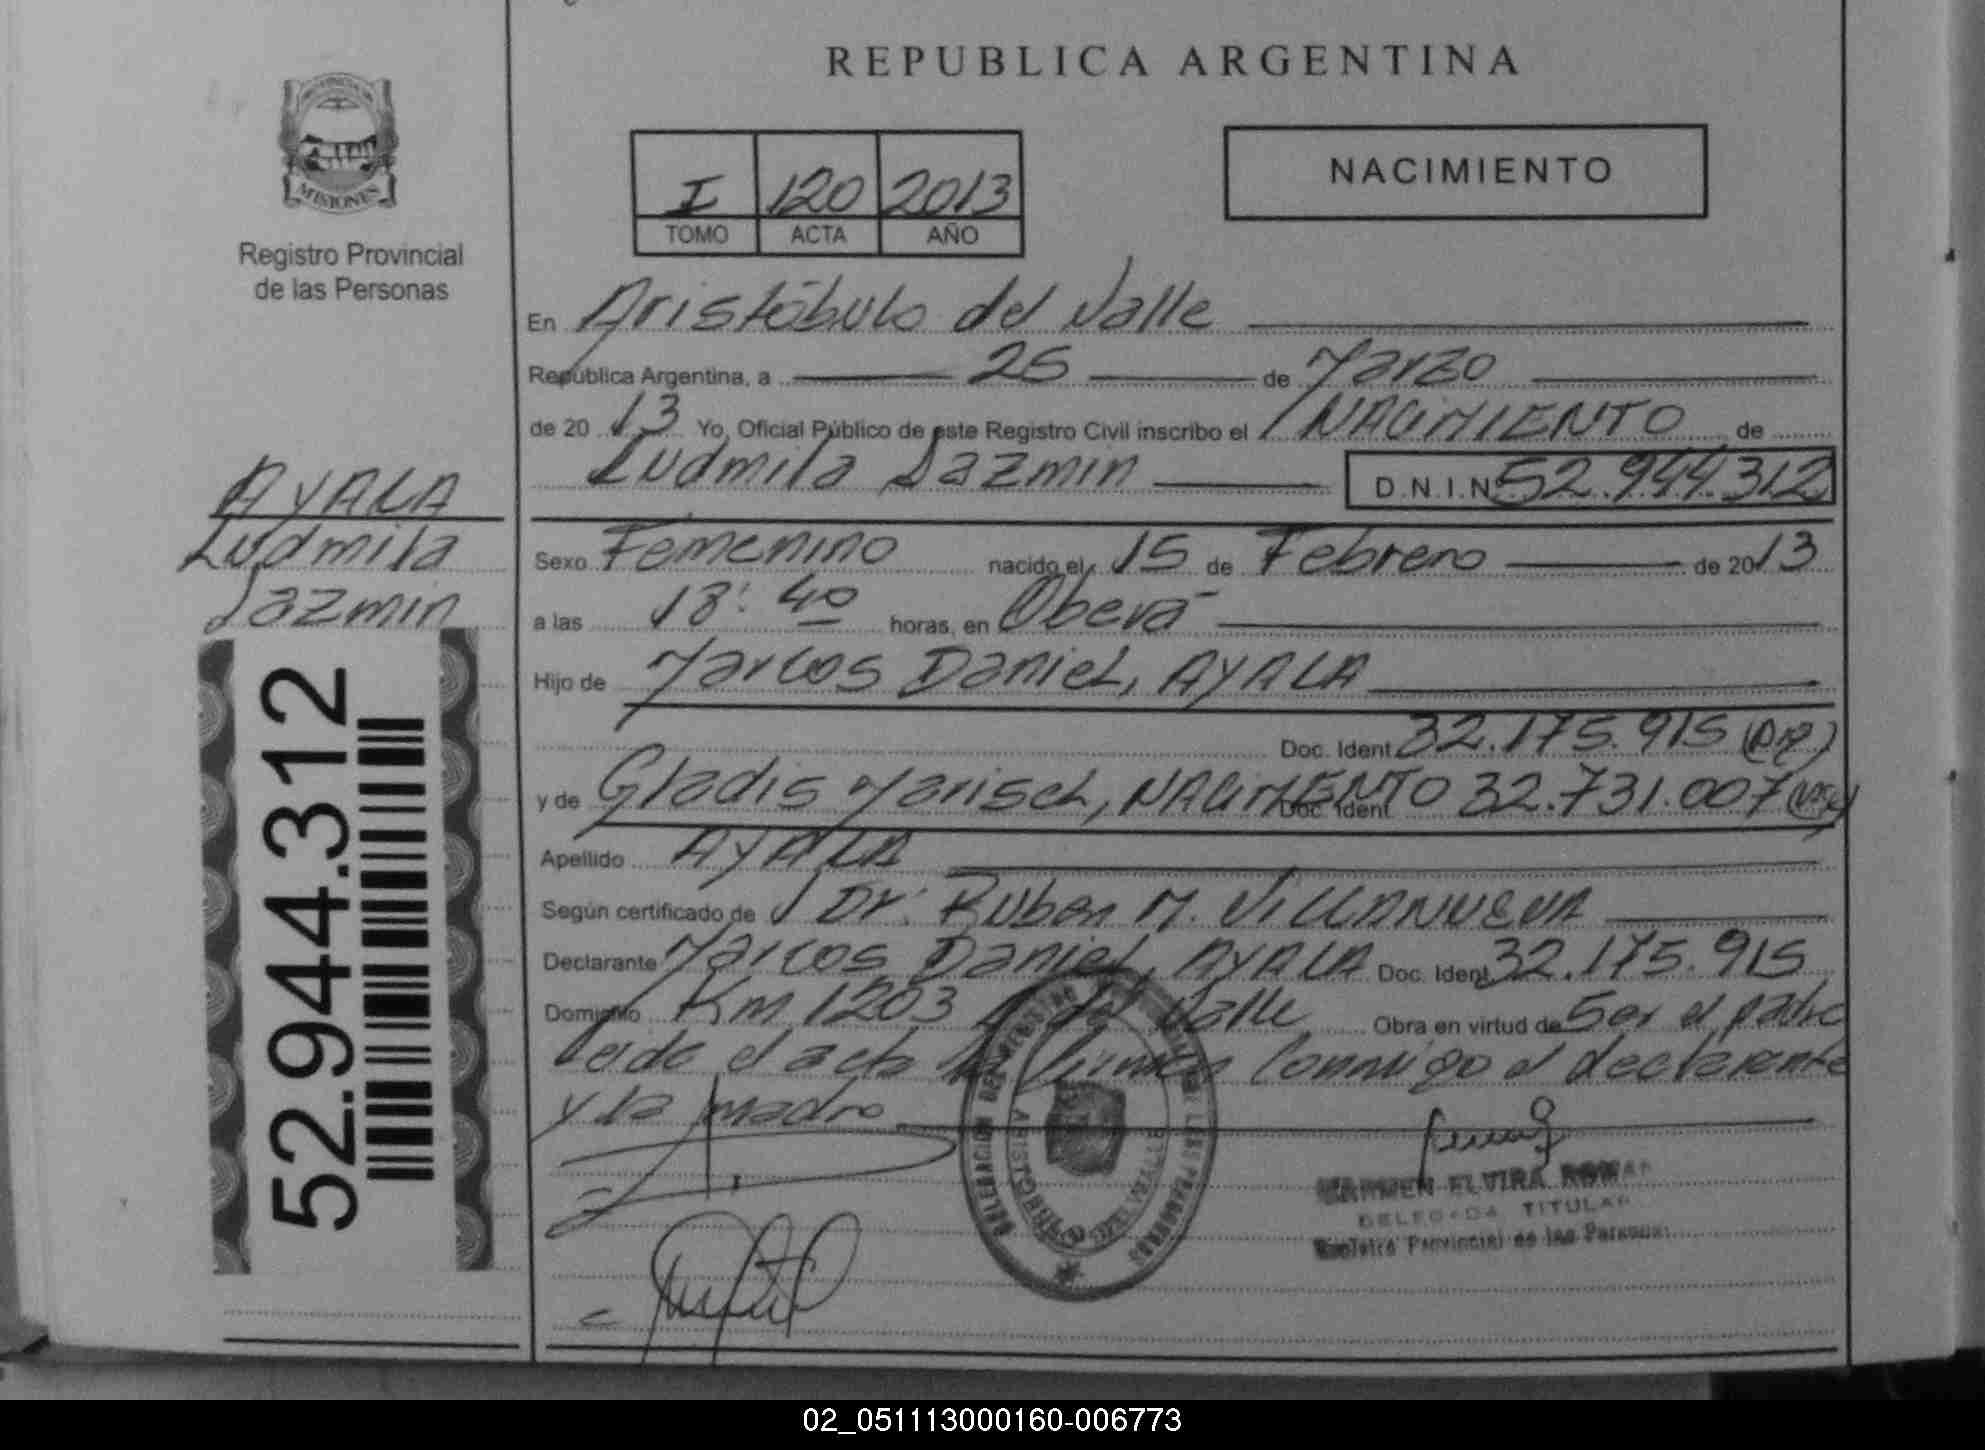 REPUBLICA ARGENTINA
PROVINCIA DE
MISIONES
Registro Provincial
de las Personas
I 120 2013
TOMO ACTA AÑO
NACIMIENTO
En Aristóbulo del Valle
República Argentina, a 25 de Marzo
de 2013 Yo, Oficial Público de este Registro Civil inscribo el NACIMIENTO de
Ludmila Jazmin D.N.I.Nº 52.944.312
AYALA
Ludmila
Jazmin
52.944.312
Sexo Femenino nacido el 15 de Febrero de 2013
a las 18:40 horas, en Oberá
Hijo de Marcos Daniel, AYALA
Doc. Ident. 32.175.915
y de Gladis Marisel, NACIMIENTO Doc. Ident. 32.731.007
Apellido AYALA
Según certificado de Dr. Ruben M. VILLANUEVA
Declarante Marcos Daniel, AYALA Doc. Ident. 32.175.915
Domicilio Km 1203 A. del Valle Obra en virtud de Ser el padre
Leída el acta la firman conmigo el declarante
y la madre
DELEGACION DEL REGISTRO DE LAS PERSONAS
ARISTOBULO
CARMEN ELVIRA ROMAN
DELEGADA TITULAR
Registro Provincial de las Personas
02_051113000160-006773